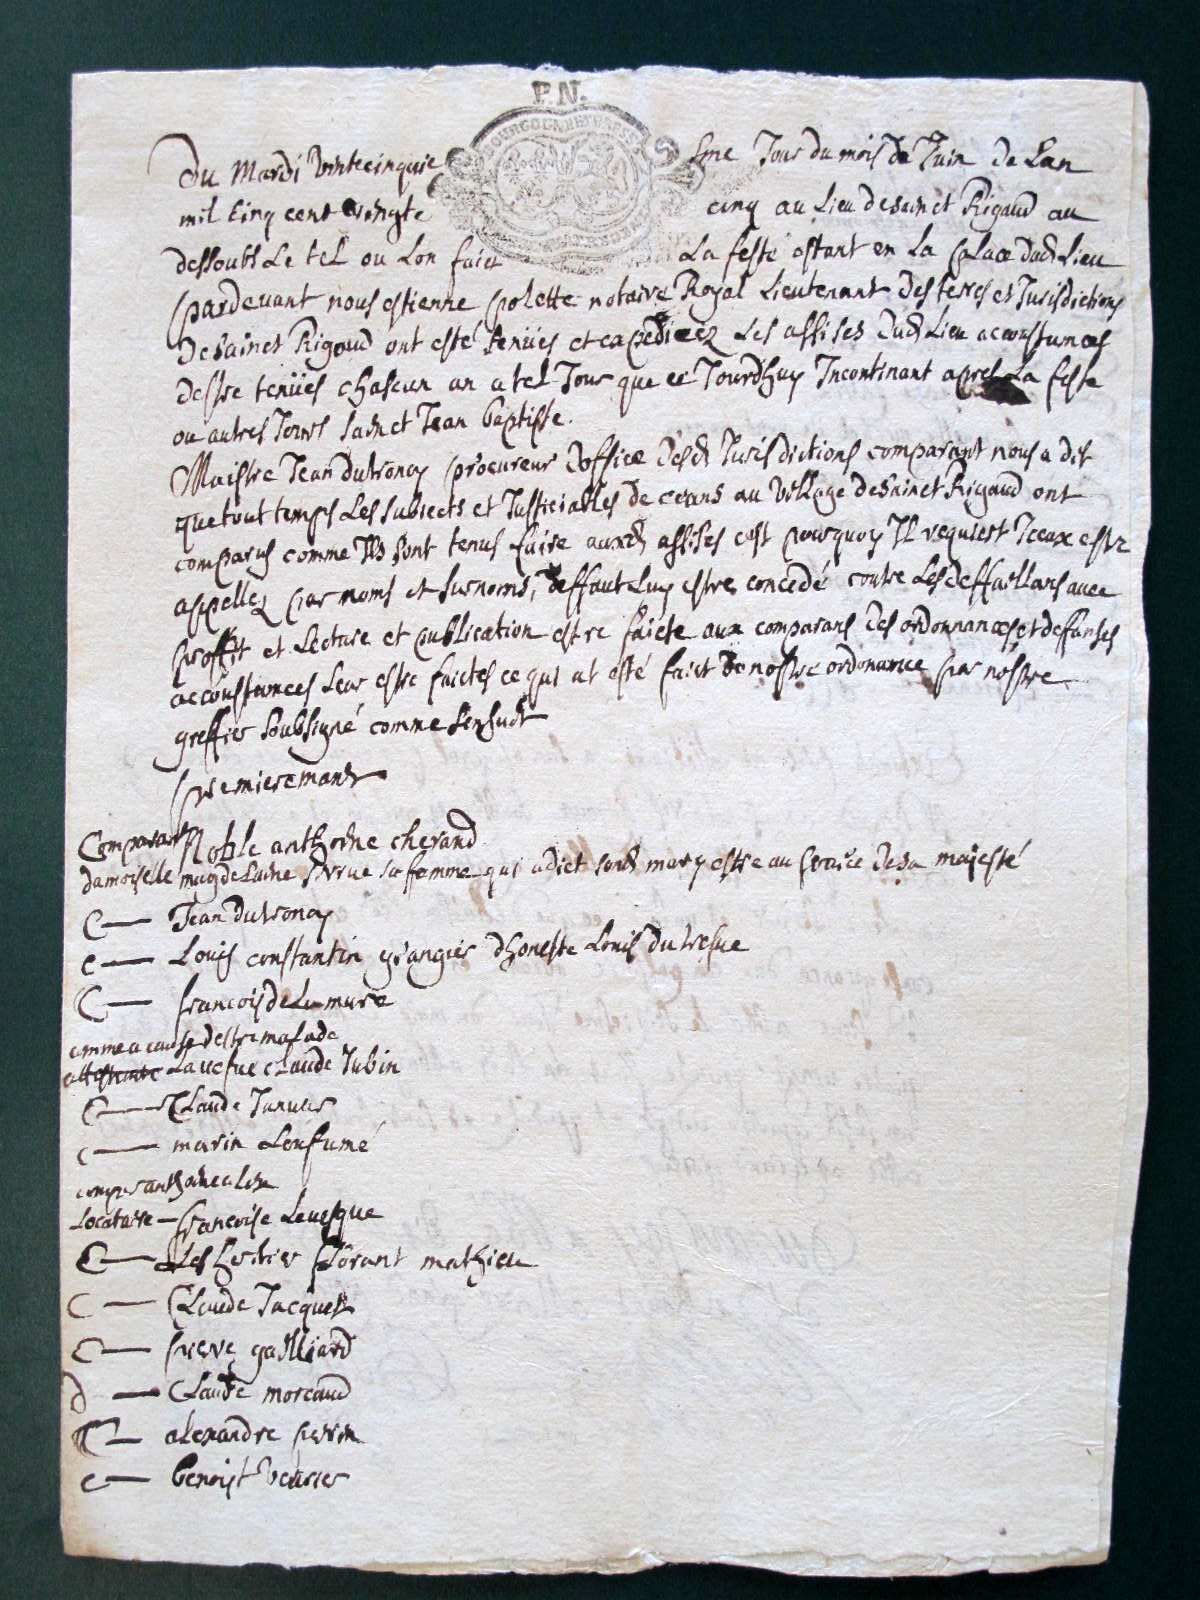 P.N.
BOURGOGNE ET BRESSE
Du Mardi vintecinquie sme Jour du mois de Juin de Lan
mil cinq cent vingte cinq au Lieu de sainct Rigaud au
dessoubs Le tel ou Lon faict La feste estant en La place dud Lieu
pardevant nous estienne polette notaire Royal Lieutenant des terres et Jurisdictions
de sainct Rigaud ont esté tenües et expediees Les assises dud Lieu accoustumees
destre tenües chascun an a tel Jour que ce Jourdhuy Incontinant apres La feste
ou autres Jours sainct Jean baptiste.
Maistre Jean dutroncy procureur doffice desd Jurisdictions comparant nous a dit
que tout temps Les subiects et Justiciables de ceans au village de sainct Rigaud ont
comparus comme Ils sont tenus faire auxd assises cest pourquoy Il requiert Iceux estre
appellez par noms et surnoms, deffaut Luy estre concedé contre Les deffaillans avec
proffit et Lecture et publication estre faicte aux comparans des ordonnances et defenses
accoustumees Leur estre faictes ce qui at esté faict de nostre ordonance par nostre
greffier soubsigné comme sensuit
premierement
Comparant Noble anthoine cherand
damoiselle magdelaine sa femme qui a dict sond mary estre au service de sa majesté
C — Jean dutroncy
c — Louis constantin grangier dhoneste Louis dutresne
C — francois de Lamure
comme a cause destre malade
La vefue claude Jubin
C — Claude
c — marin Lenfumé
Locataire — francoise Levesque
C — Les heritier florant mathieu
C — Claude Jacquet
C — pierre gailliard
d — Claude moreaud
C — alexandre perrin
c — benoist